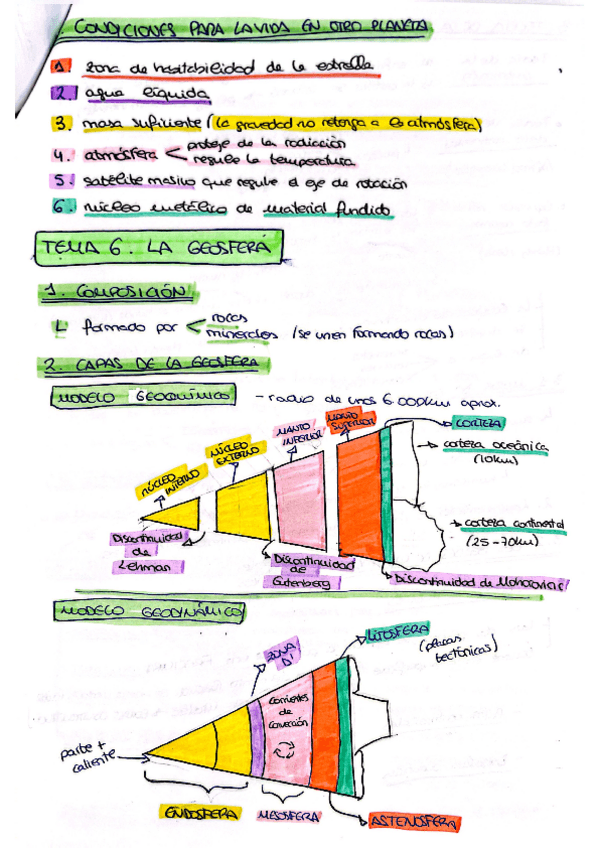 CONDICIONES PARA LA VIDA EN OTRO PLANETA
1. zona de habitabilidad de la estrella
2. agua líquida
3. masa suficiente (la gravedad no retenga a la atmósfera)
4. atmósfera < protege de la radiación
regule la temperatura
5. satélite masivo que regule el eje de rotación
6. núcleo metálico de material fundido
TEMA 6. LA GEOSFERA
1. COMPOSICIÓN
formado por < rocas
minerales (se unen formando rocas)
2. CAPAS DE LA GEOSFERA
MODELO GEOQUÍMICO - radio de unos 6.000km aprox.
NÚCLEO INTERNO
NÚCLEO EXTERNO
MANTO INFERIOR
MANTO SUPERIOR
CORTEZA
corteza oceánica
(10km)
corteza continental
(25-70km)
Discontinuidad
de
Lehman
Discontinuidad
de
Gutenberg
Discontinuidad de Mohorovicic
MODELO GEODINÁMICO
ZONA
D'
LITOSFERA
(placas
tectónicas)
corrientes
de
convección
parte +
caliente
ENDOSFERA
MESOSFERA
ASTENOSFERA